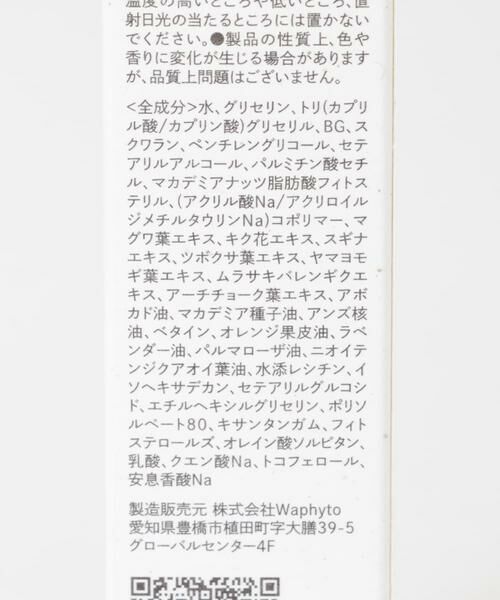 温度の高いところや低いところ、直
射日光の当たるところには置かない
でください。●製品の性質上、色や
香りに変化が生じる場合があります
が、品質上問題はございません。
<全成分>水、グリセリン、トリ(カプリ
ル酸/カプリン酸)グリセリル、BG、ス
クワラン、ペンチレングリコール、セテ
アリルアルコール、パルミチン酸セチ
ル、マカデミアナッツ脂肪酸フィトス
テリル、(アクリル酸Na/アクリロイル
ジメチルタウリンNa)コポリマー、マ
グワ葉エキス、キク花エキス、スギナ
エキス、ツボクサ葉エキス、ヤマヨモ
ギ葉エキス、ムラサキバレンギクエ
キス、アーチチョーク葉エキス、アボ
カド油、マカデミア種子油、アンズ核
油、ベタイン、オレンジ果皮油、ラベ
ンダー油、パルマローザ油、ニオイテ
ンジクアオイ葉油、水添レシチン、イ
ソヘキサデカン、セテアリルグルコシ
ド、エチルヘキシルグリセリン、ポリソ
ルベート80、キサンタンガム、フィト
ステロールズ、オレイン酸ソルビタン、
乳酸、クエン酸Na、トコフェロール、
安息香酸Na
製造販売元 株式会社Waphyto
愛知県豊橋市植田町字大膳39-5
グローバルセンター4F